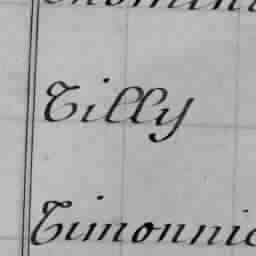 Tilly
Timonnic